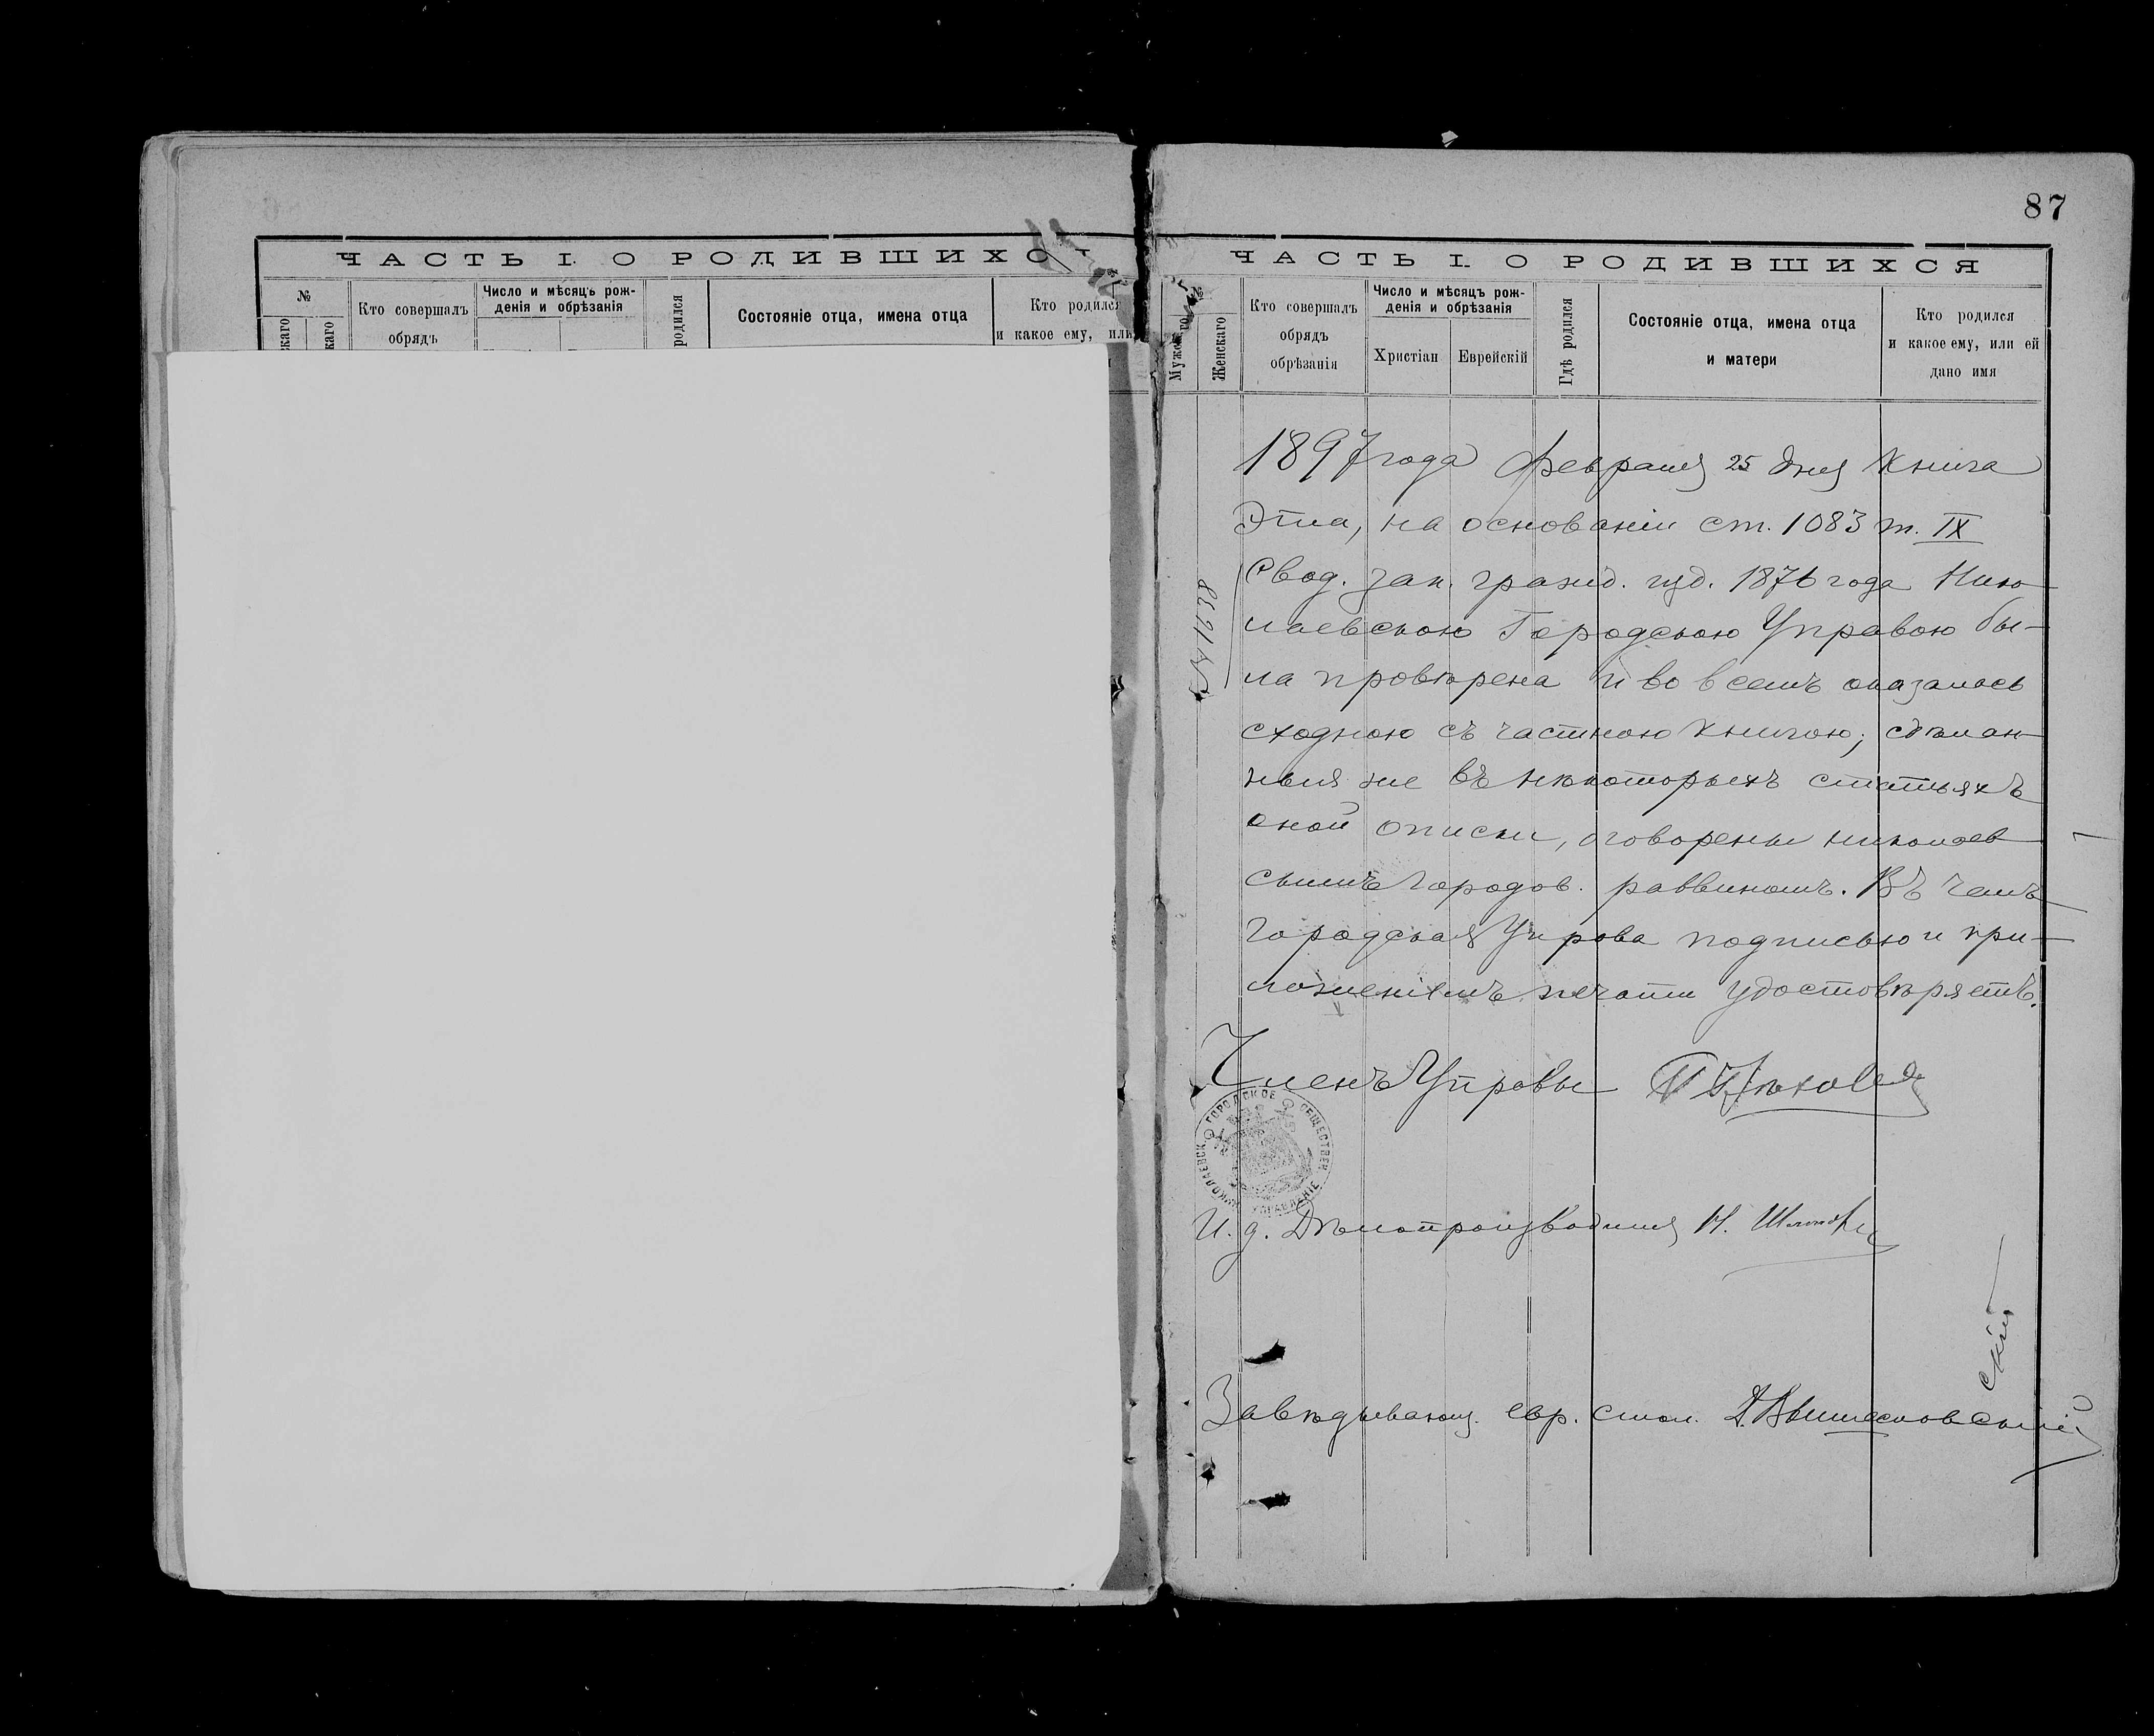 ЧАСТЬ I. О РОДИВШИХС
№
Кто совершалъ
обрядъ
Число и мѣсяцъ рож-
денія и обрѣзанія
родился
Состояніе отца, имена отца
Кто родился
и какое ему, или
скаго
каго
87
ЧАСТЬ I. О РОДИВШИХСЯ
№
Мужского
Женскаго
Кто совершалъ
обрядъ
обрѣзанія
Число и мѣсяцъ рож-
денія и обрѣзанія
Христіан
Еврейскій
Гдѣ родился
Состояніе отца, имена отца
и матери
Кто родился
и какое ему, или ей
дано имя
1897 года Февраля 25 дня Книга
Эта, на основаніи ст. 1083 т. IX
Свод. зак. гражд. изд. 1876 года Нико-
лаевскою Городскою Управою бы-
ла провѣрена и во всемъ оказалось
сходною съ частною книгою; сдѣлан-
ныя же въ нѣкоторыхъ статьяхъ
оной описки, оговорены николаев-
скимъ городов. раввиномъ. Въ чемъ
Городская Управа подписью и при-
ложеніемъ печати удостовѣряетъ.
Членъ Управы
НИКОЛАЕВСК. ГОРОДСКОЕ ОБЩЕСТВЕН. УПРАВЛЕНІЕ
И. д. Дѣлопроизводителя Н.
Завѣдывающ. евр. стол.